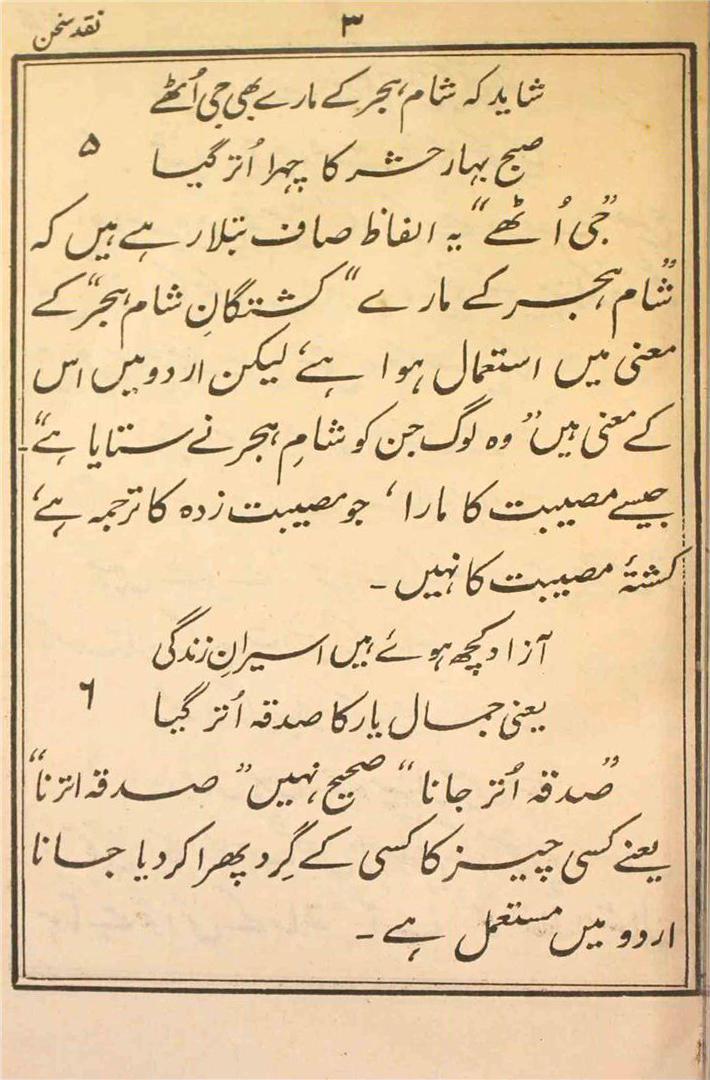 نقد سخن
۳
شاید کہ شام ہجر کے مارے بھی جی اُٹھے
صبح بہار حشر کا چہرا اُتر گیا ۵
”جی اُٹھے“ یہ الفاظ صاف بتلا رہے ہیں کہ
”شام ہجر کے مارے“ کشتگانِ شام ہجر“ کے
معنی میں استعمال ہوا ہے، لیکن اردو میں اس
کے معنی ہیں ”وہ لوگ جن کو شامِ ہجر نے ستایا ہے“۔
جیسے مصیبت کا مارا، جو مصیبت زدہ کا ترجمہ ہے،
کشتۂ مصیبت کا نہیں۔
آزاد کچھ ہوئے ہیں اسیرانِ زندگی
یعنی جمال یار کا صدقہ اُتر گیا ۶
”صدقہ اُتر جانا“ صحیح نہیں ”صدقہ اترنا“
یعنے کسی چیز کا کسی کے گِرد پھرا کر دیا جانا
اردو میں مستعمل ہے۔